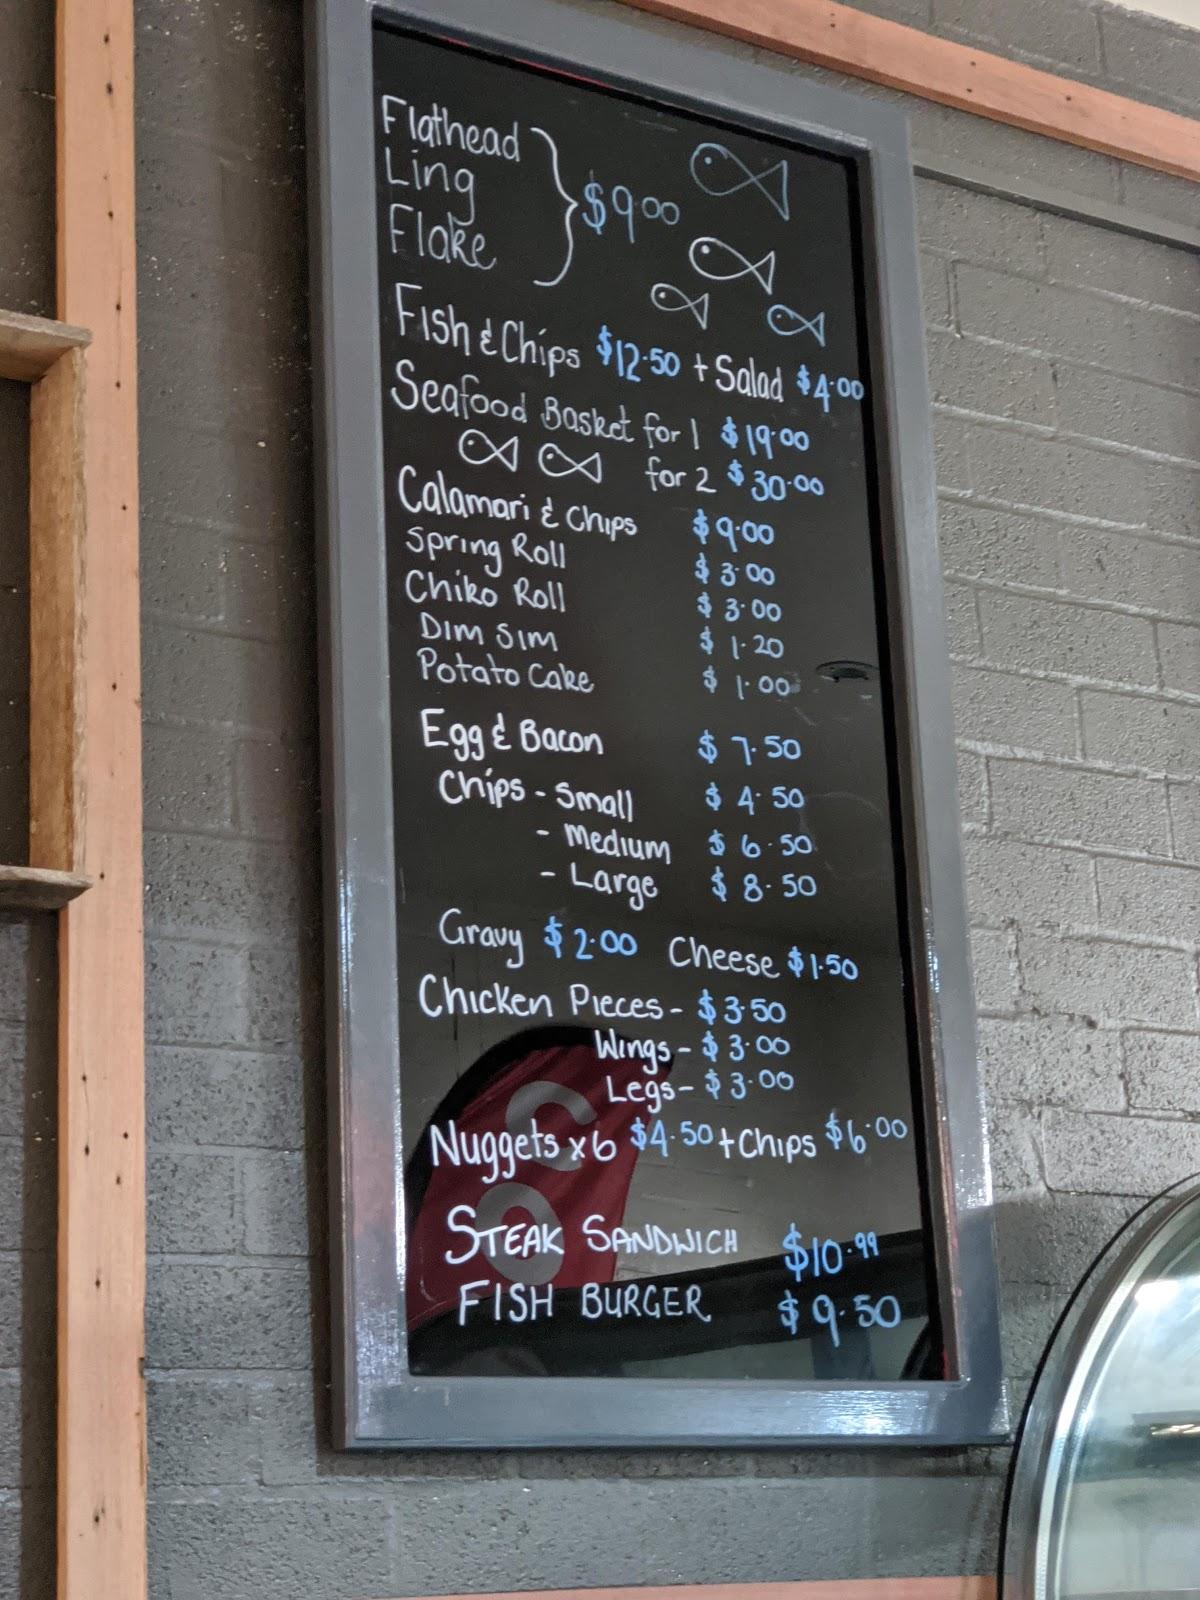 Flathead
Ling
Flake
$9.00
Fish & Chips $12.50 + Salad $4.00
Seafood Basket for 1 $19.00
for 2 $30.00
Calamari & Chips $9.00
Spring Roll $3.00
Chiko Roll $3.00
Dim Sim $1.20
Potato Cake $1.00
Egg & Bacon $7.50
Chips - Small $4.50
- Medium $6.50
- Large $8.50
Gravy $2.00 Cheese $1.50
Chicken Pieces - $3.50
Wings - $3.00
Legs - $3.00
Nuggets x6 $4.50 + Chips $6.00
STEAK SANDWICH $10.99
FISH BURGER $9.50